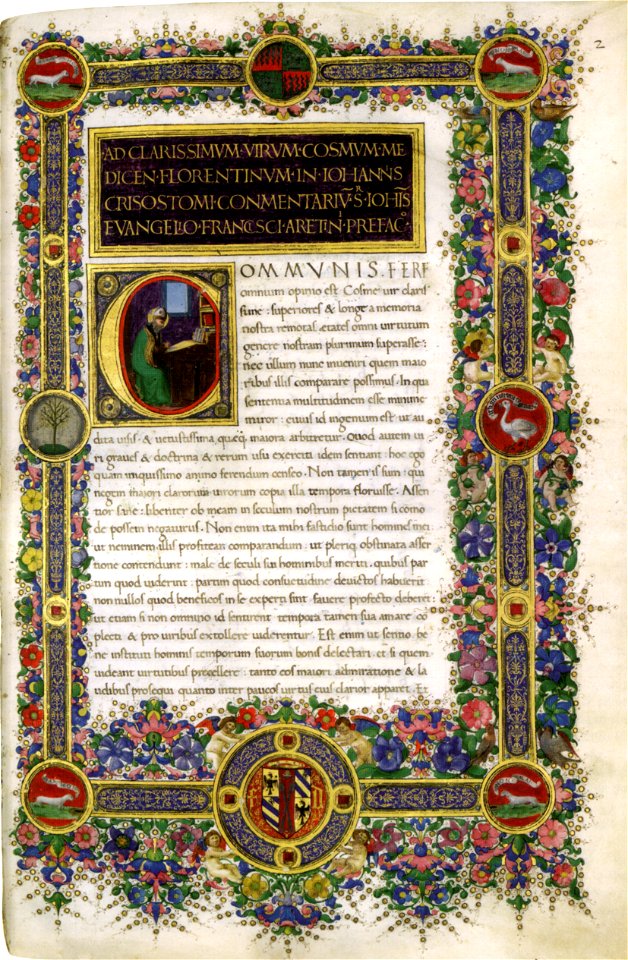 2
AD CLARISSIMVM·VIRVM·COSMVM·ME
DICEN·FLORENTINVM·IN·IOHANNS
CRISOSTOMI·CONMENTARIV̅·SR·IOHIS̅
EVANGELIO·FRANCISCI·ARETINI·PREFACO
COMMVNIS·FERE
omnium opinio est Cosme uir claris
sime: superiores & longe a memoria
nostra remotas etates omni uirtutum
genere nostram plurimum superasse:
nec ullum nunc inueniri quem maio
ribus illis comparare possimus. In qua
sententia multitudinem esse minime
miror: cuius id ingenium est ut au
dita uisis & uetustissima queq; maiora arbitretur. Quod autem ui
ri graues & doctrina & rerum usu exerciti idem sentiant: hoc ego
quam iniquissimo animo ferendum censeo. Non tamen is sum: qui
negem maiori clarorum uirorum copia illa tempora floruisse. Assen
tior sane: libenter ob meam in seculum nostrum pietatem si comō
de possem negaturus. Non enim ita mihi fastidio sunt homines mei
ut neminem illis profitear comparandum: ut pleriq; obstinata asser
tione contendunt: male de seculi sui hominibus meriti. quibus par
tim quod uiderint: partim quod consuetudine deuictos habuerint
non nullos quod beneficos in se experti sint fauere profecto deberēt:
ut etiam si non omnino id sentirent tempora tamen sua amare cō
plecti & pro uiribus extollere uiderentur. Est enim ut sentio. be
ne instituti hominis temporum suorum bonis delectari. et si quem
uideant uirtutibus precellere: tanto eos maiori admiratione & la
udibus prosequi quanto inter paucos uirtus eius clarior apparet. Et